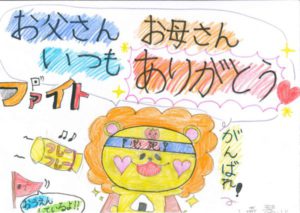 お父さん お母さん
いつも ありがとう
ファイト
がんばれ!
フレーフレー
おうえん
しているよ!!